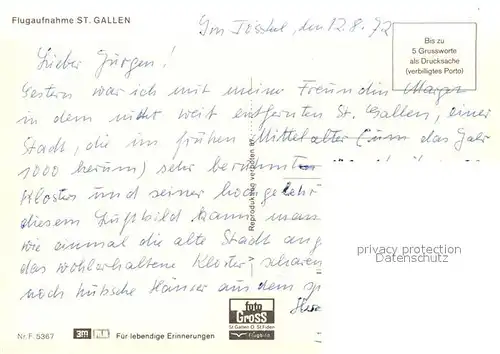 Flugaufnahme ST. GALLEN
den 12.8.72
Bis zu
5 Grussworte
als Drucksache
(verbilligtes Porto)
Lieber Jürgen!
Gestern war ich mit meiner Freundin
in dem nicht weit entfernten St. Gallen, einer
Stadt, die im frühen Mittelalter (um das Jahr
1000 herum) sehr berühmten
Klosters und seiner
diesem Luftbild kann man
wie einmal die alte Stadt
das wohlerhaltene Kloster scharen
noch hübsche Häuser aus dem
Reproduktion verboten
privacy protection
Datenschutz
foto
Gross
St. Gallen O. St. Fiden
Nr. F. 5367
3M
Für lebendige Erinnerungen